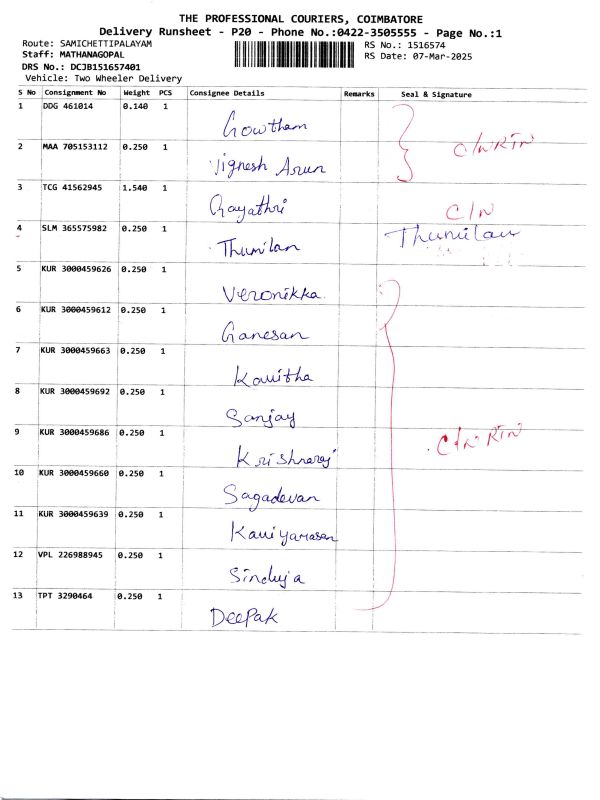 THE PROFESSIONAL COURIERS, COIMBATORE
Delivery Runsheet - P20 - Phone No.:0422-3505555 - Page No.:1
Route: SAMICHETTIPALAYAM RS No.: 1516574
Staff: MATHANAGOPAL RS Date: 07-Mar-2025
DRS No.: DCJB151657401
Vehicle: Two Wheeler Delivery
S No Consignment No Weight PCS Consignee Details Remarks Seal & Signature
1 DDG 461014 0.140 1
Gowtham
C/N RTN
2 MAA 705153112 0.250 1
Vignesh Arun
3 TCG 41562945 1.540 1
Gayathri C/N
4 SLM 365575982 0.250 1
Thumilan Thumilan
5 KUR 3000459626 0.250 1
Veronikka
6 KUR 3000459612 0.250 1
Ganesan
7 KUR 3000459663 0.250 1
Kavitha
8 KUR 3000459692 0.250 1
Sanjay
9 KUR 3000459686 0.250 1
C/N RTN
Krishnaraj
10 KUR 3000459660 0.250 1
Sagadevan
11 KUR 3000459639 0.250 1
Kaviyarasan
12 VPL 226988945 0.250 1
Sinduja
13 TPT 3290464 0.250 1
Deepak